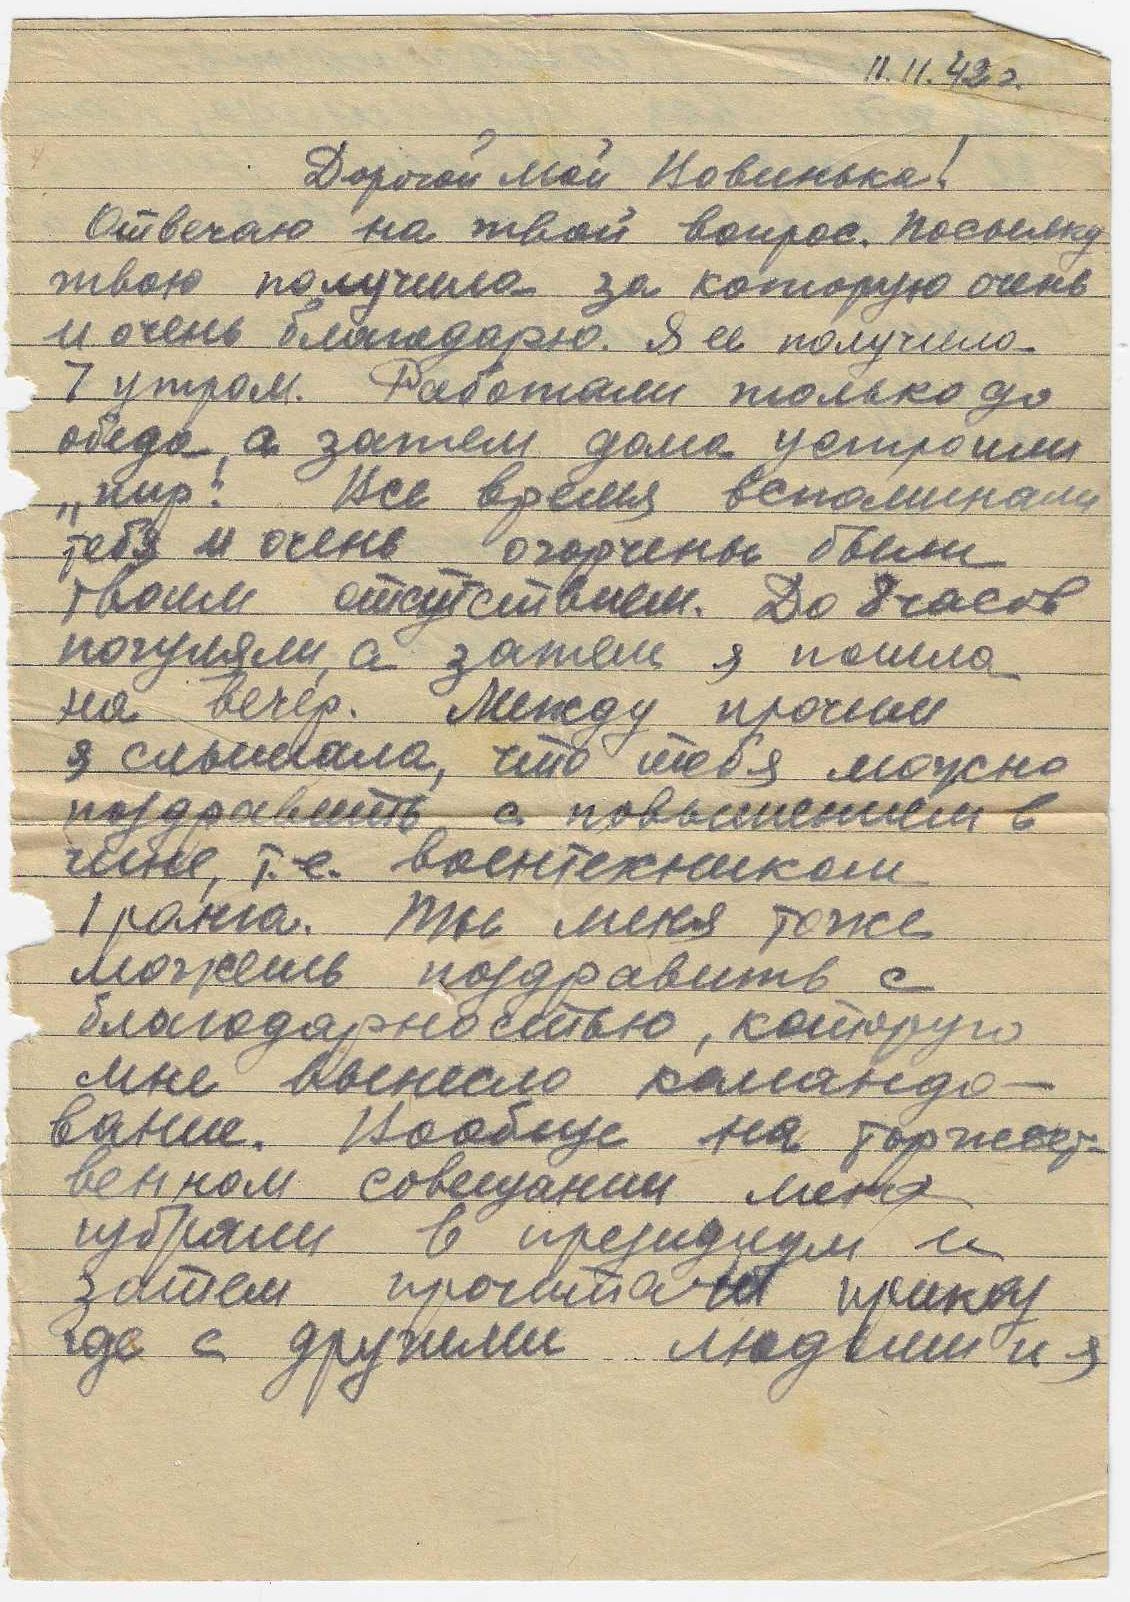 11.11.42 г.
Дорогой мой Вовинька!
Отвечаю на твой вопрос. Посылку
твою получила за которую очень
и очень благодарю. Я ее получила
7 утром. Работали только до
обеда, а затем дома устроили
„пир". Все время вспоминали
тебя и очень огорчены были
твоим отсутствием. До 8 часов
погуляли, а затем я пошла
на вечер. Между прочим
я слышала, что тебя можно
поздравить с повышением в
чине, т.е. воентехником
1 ранга. Ты меня тоже
можешь поздравить с
благодарностью, которую
мне вынесло командо-
вание. Вообще на торжест-
венном совещании меня
избрали в президиум и
затем прочитали приказ
где с другими людьми и я